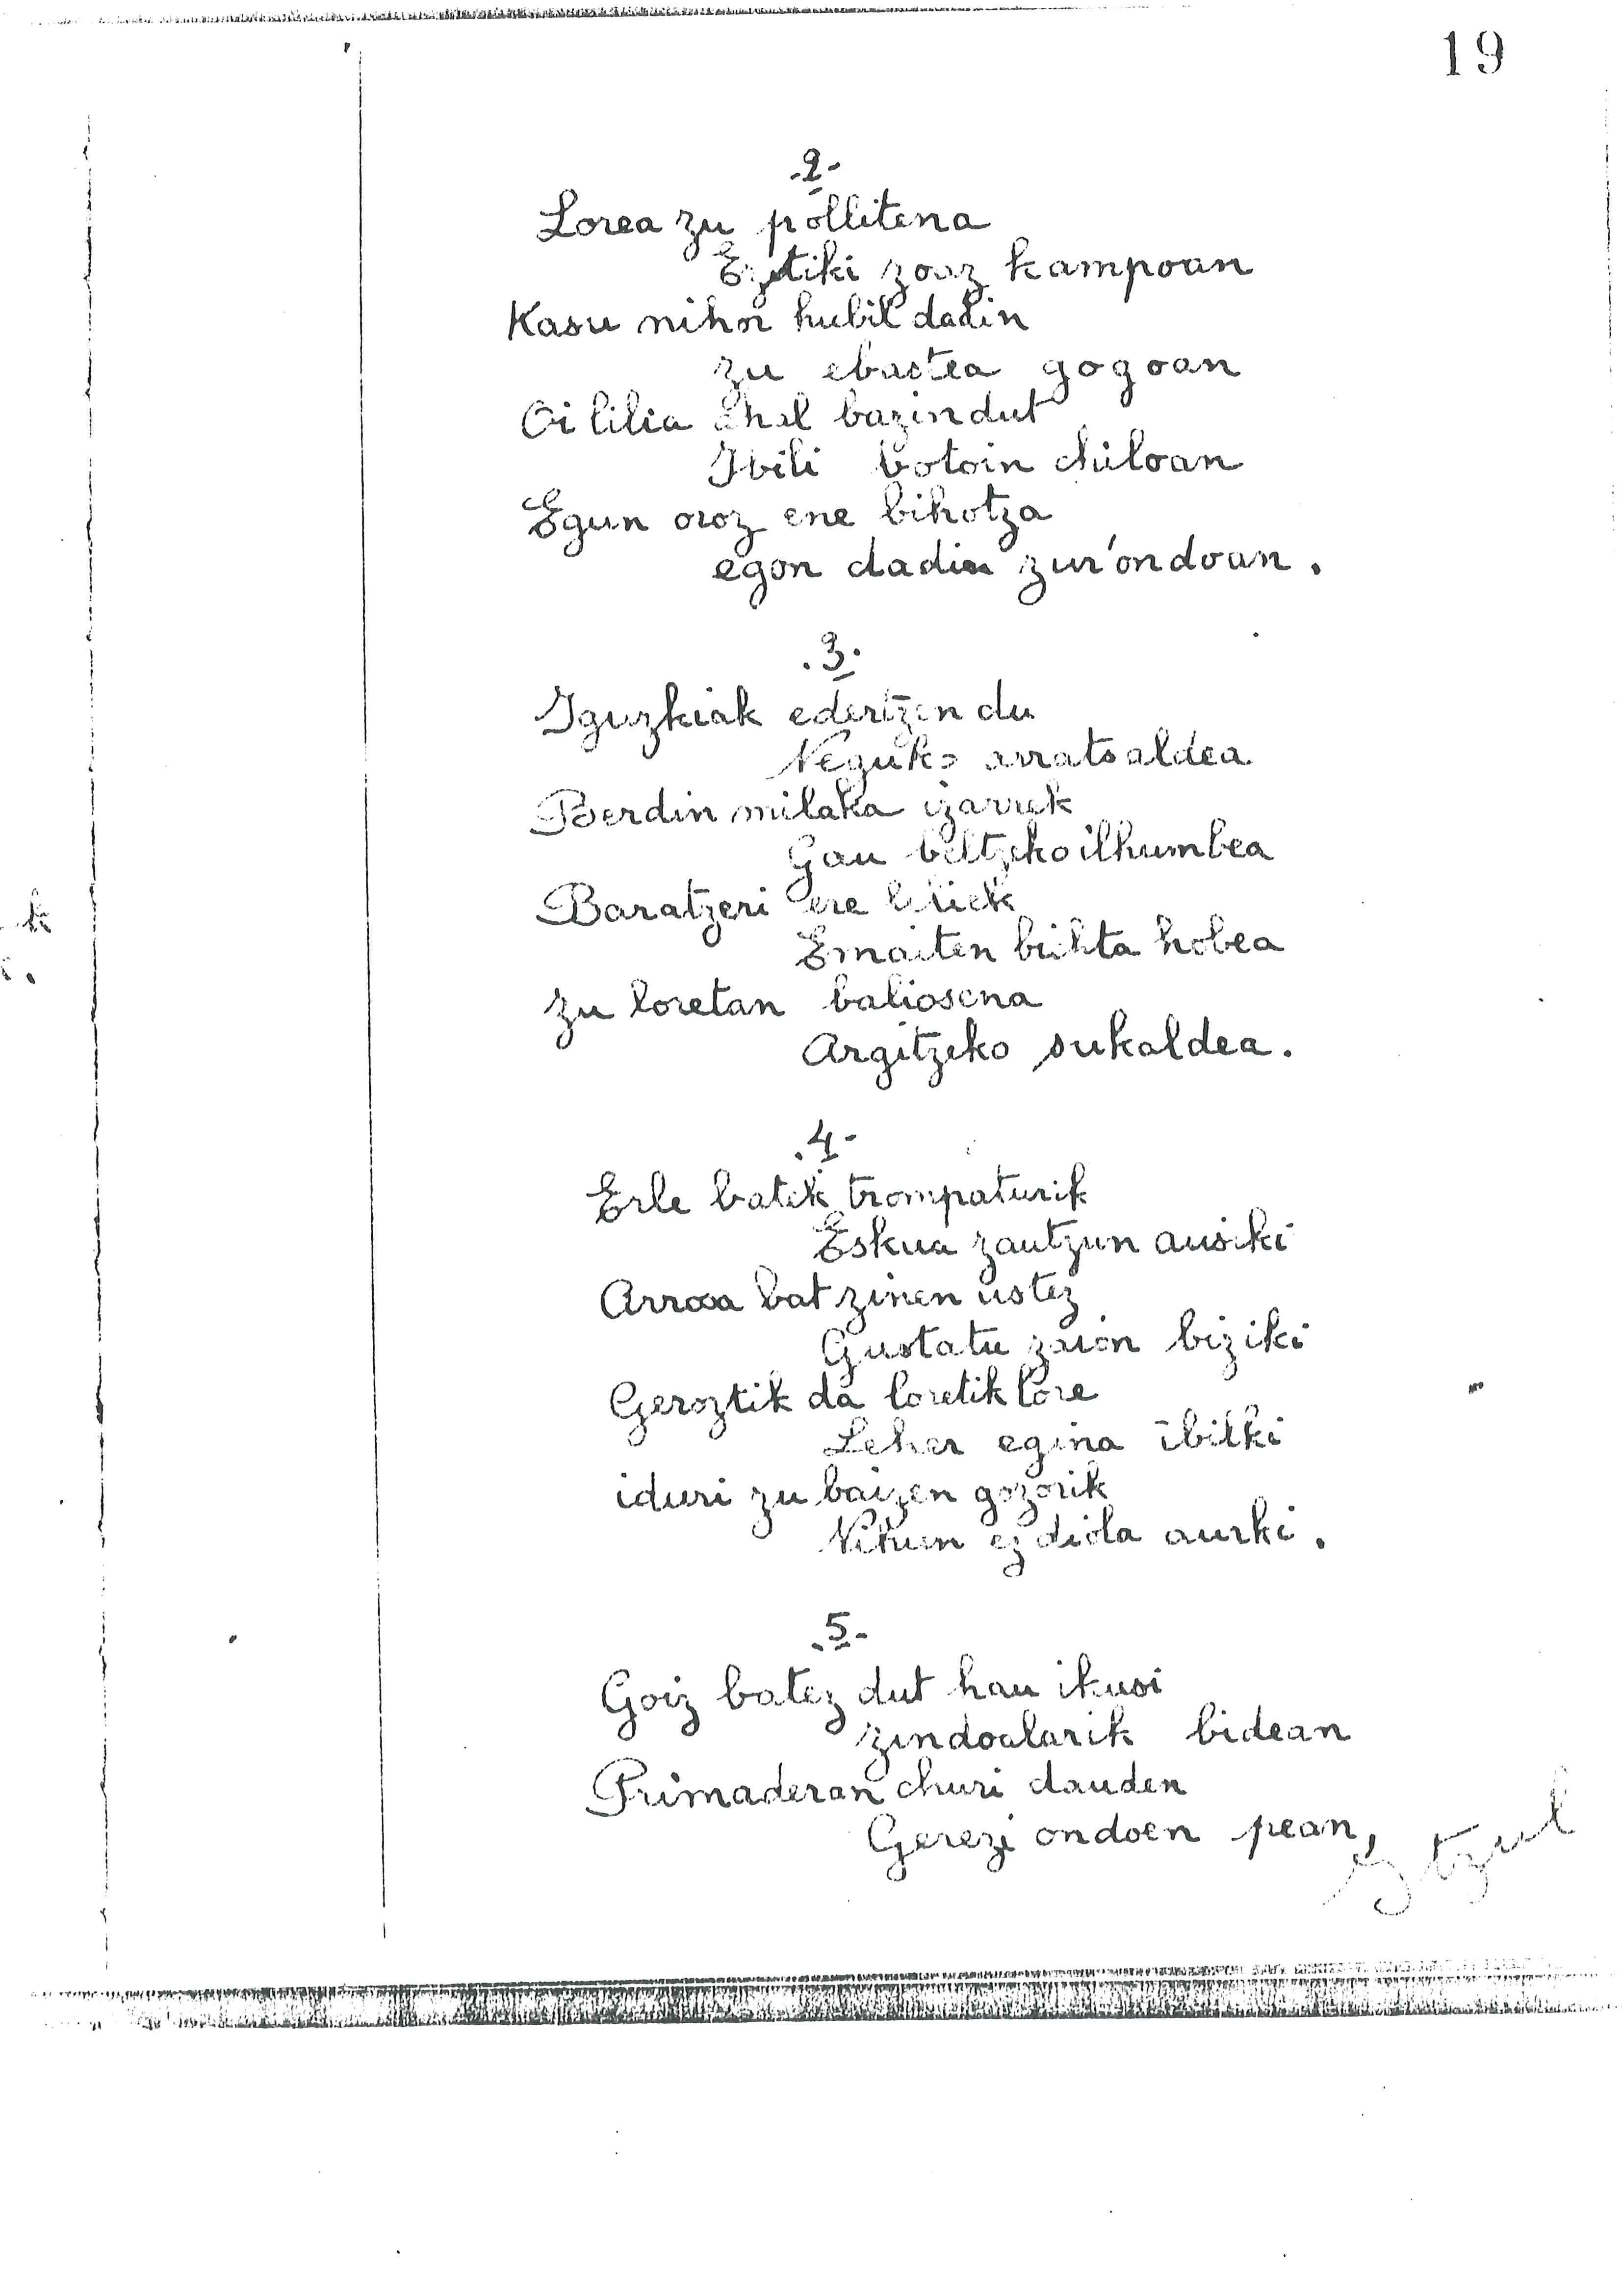 19
-2-
Lorea zu pollitena
Eztiki zoaz kampoan
Kasu nihor hubil dadin
zu ebastea gogoan
Oi lilia ahal bazindut
Ibili botoin chiloan
Egun oroz ene bihotza
egon dadin zur'ondoan.
.3.
Iguzkiak edertzen du
Neguko arratsaldea
Berdin milaka izarrek
Gau beltzeko ilhumbea
Baratzeri ere liliek
Emaiten bichta hobea
zu loretan baliosena
Argitzeko sukaldea.
.4-
Erle batek trompaturik
Eskua zautzun ausiki
Arrosa bat zinen ustez
Gustatu zaion biziki
Geroztik da loretik lore
Leher egina ibilki
iduri zu baizen gozorik
Nihun ez diola aurki.
.5-
Goiz batez dut hau ikusi
zindoalarik bidean
Primaderan churi dauden
Gerezi ondoen pean,
Itzul
k